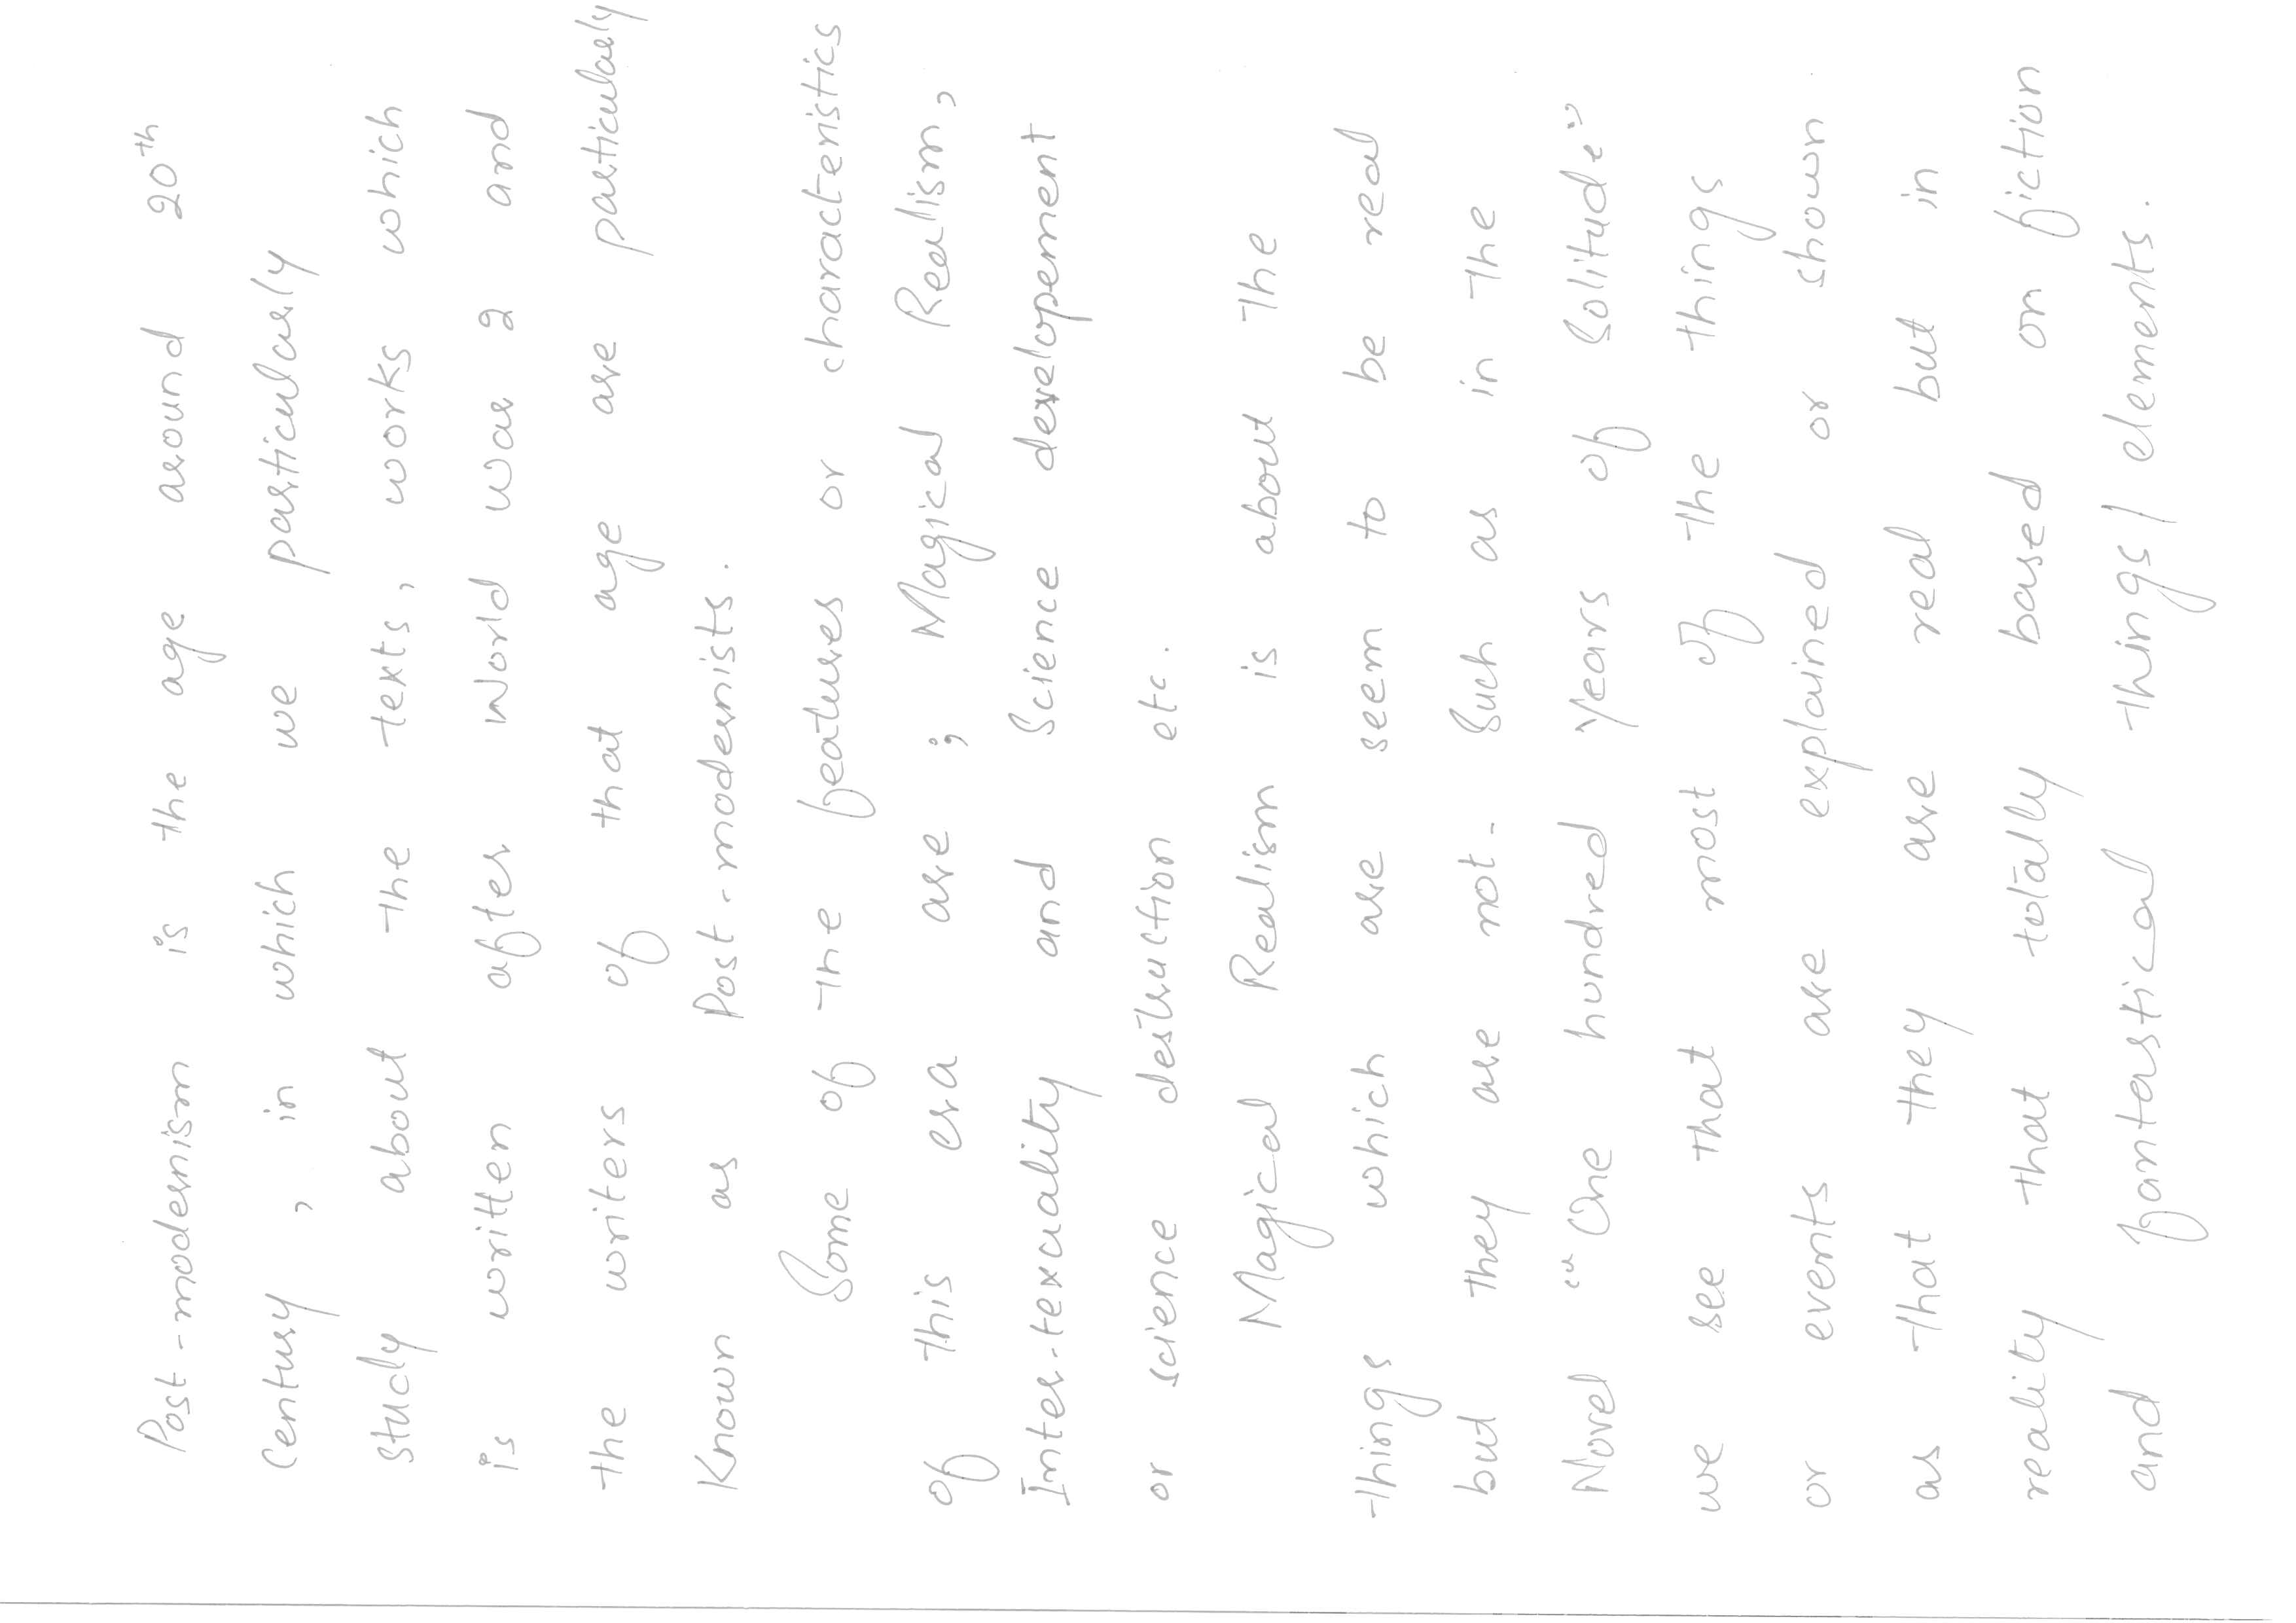 Post-modernism is the age around 20th
Century, in which we particularly
study about the texts, works which
is written after World War 2 and
the writers of that age are particularly
Known as Post-modernists.
Some of the features or characteristics
of this era are ; Magical Realism,
Inter-texuality and Science developement
or science destruction etc.
Magical Realism is about the
things which are seem to be real
but they are not. Such as in the
Novel "One hundred years of Solitude"
we see that most of the things
or events are explained or shown
as that they are real but in
reality that totally based on fiction
and fantastical things/elements.